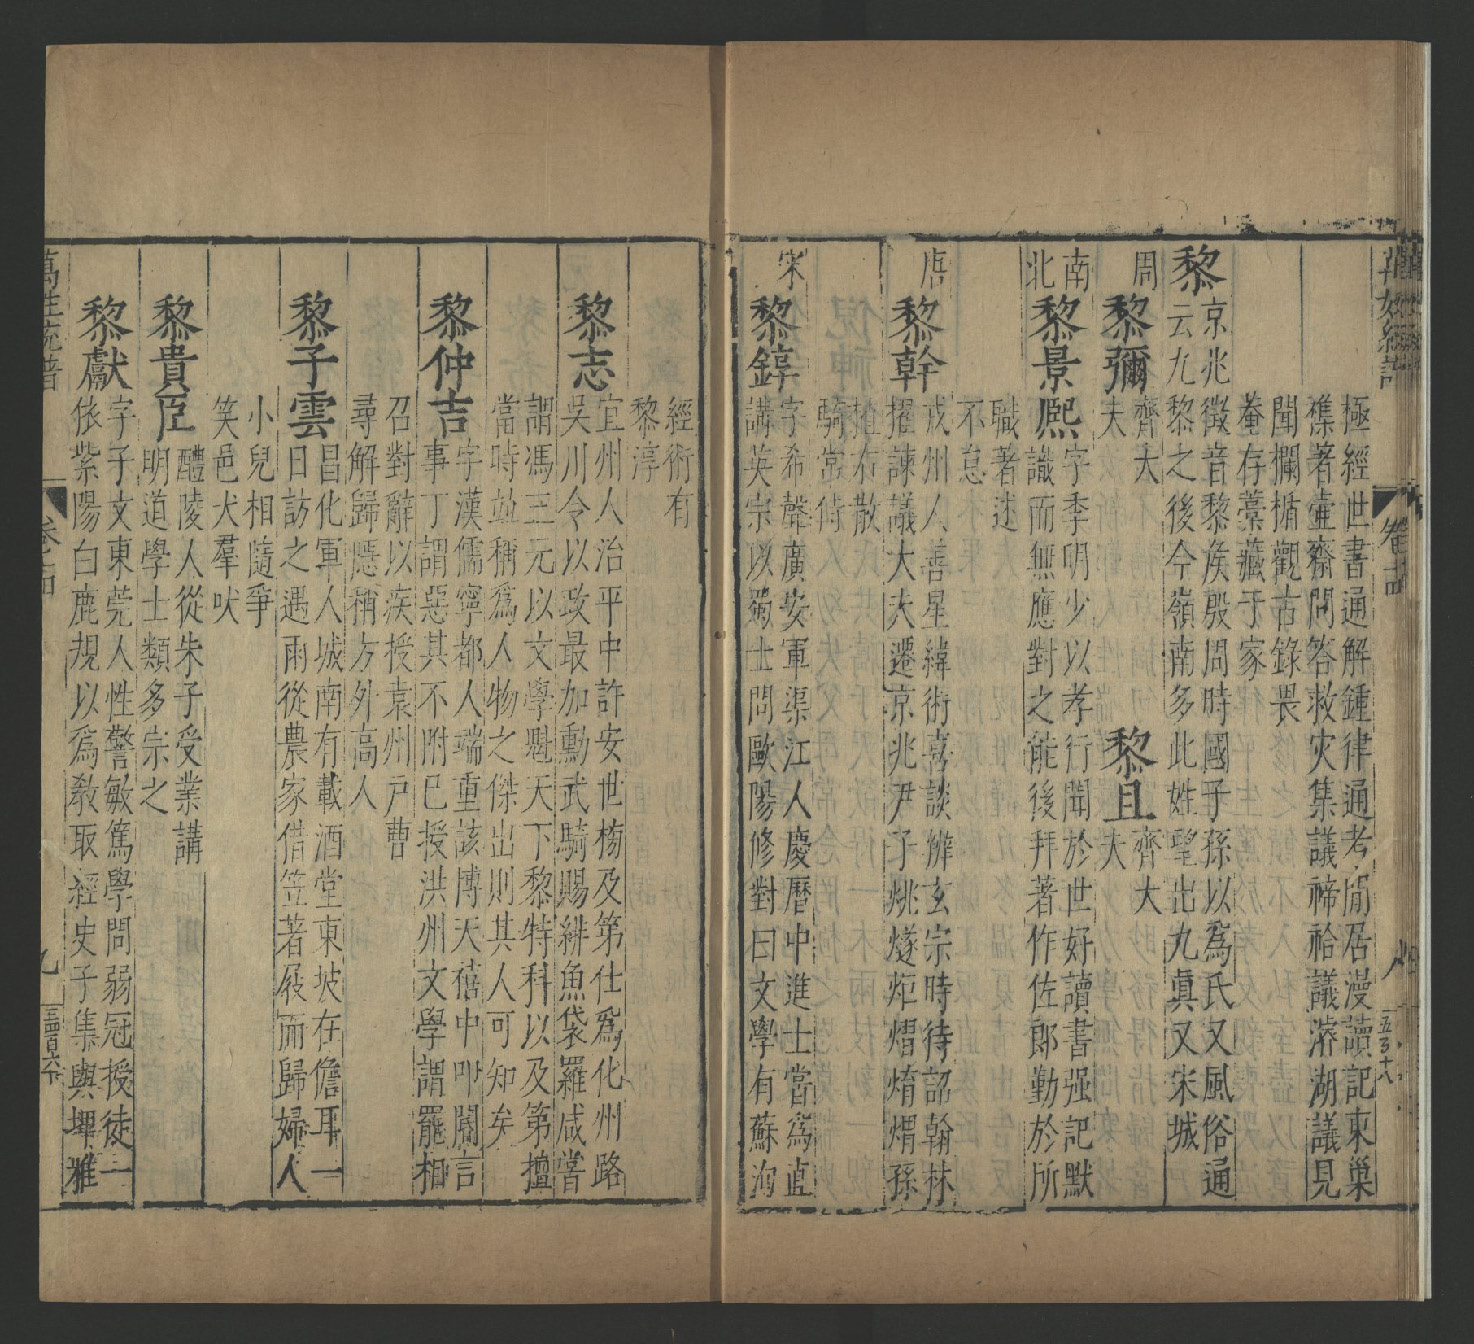 極經世書通解鍾律通考閒居漫讀記東巢
樵著壺齋問答救灾集議禘祫議滸湖議見
聞欄楯觀古錄畏
菴存藁藏于家
黎
京兆徵音黎侯殷周時國子孫以爲氏又風俗通
云九黎之後今嶺南多此姓望出九眞又宋城
周
黎彌
齊大
夫
黎且
齊大
夫
南
北
黎景熙
字季明少以孝行聞於世好讀書强記默
識而無應對之能後拜著作佐郎勤於所
職著述
不怠
唐
黎幹
戎州人善星緯術喜談辯玄宗時待詔翰林
擢諫議大夫遷京兆尹子烑燧炬熠焴煟孫
植布散
騎常侍
宋
黎錞
字希聲廣安軍渠江人慶曆中進士當爲直
講英宗以蜀士問歐陽修對曰文學有蘇洵
經術有
黎淳
黎志
宜州人治平中許安世榜及第仕爲化州路
吳川令以政最加勳武騎賜緋魚袋羅咸嘗
謂馮三元以文學魁天下黎特科以及第擅
當時竝稱爲人物之傑出則其人可知矣
黎仲吉
字漢儒寧都人端重該博天禧中叩閽言
事丁謂惡其不附巳授洪州文學謂罷相
召對辭以疾授袁州戸曹
尋解歸隱稱方外高人
黎子雲
昌化軍人城南有載酒堂東坡在儋耳一
日訪之遇雨從農家借笠著屐而歸婦人
小兒相隨爭
笑邑犬羣吠
黎貴臣
醴陵人從朱子受業講
明道學士類多宗之
黎獻
字子文東莞人性警敏篤學問弱冠授徒一
依紫陽白鹿規以爲敎取經史子集與埤雅
萬姓統譜
卷之十四
九